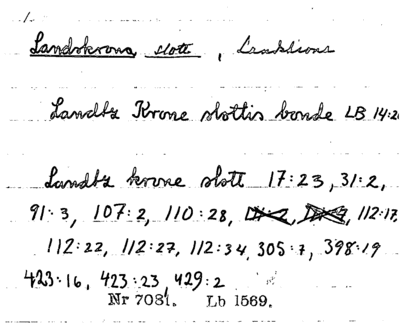 Landskrona slott,
Landtz Krone slottis bonde LB 14:2
Landtz krone slott 17:23, 31:2,
91:3, 107:2, 110:28, 112:17,
112:22, 112:27, 112:34, 305:7, 398:19
423:16, 423:23, 429:2
Nr 7081. Lb 1569.